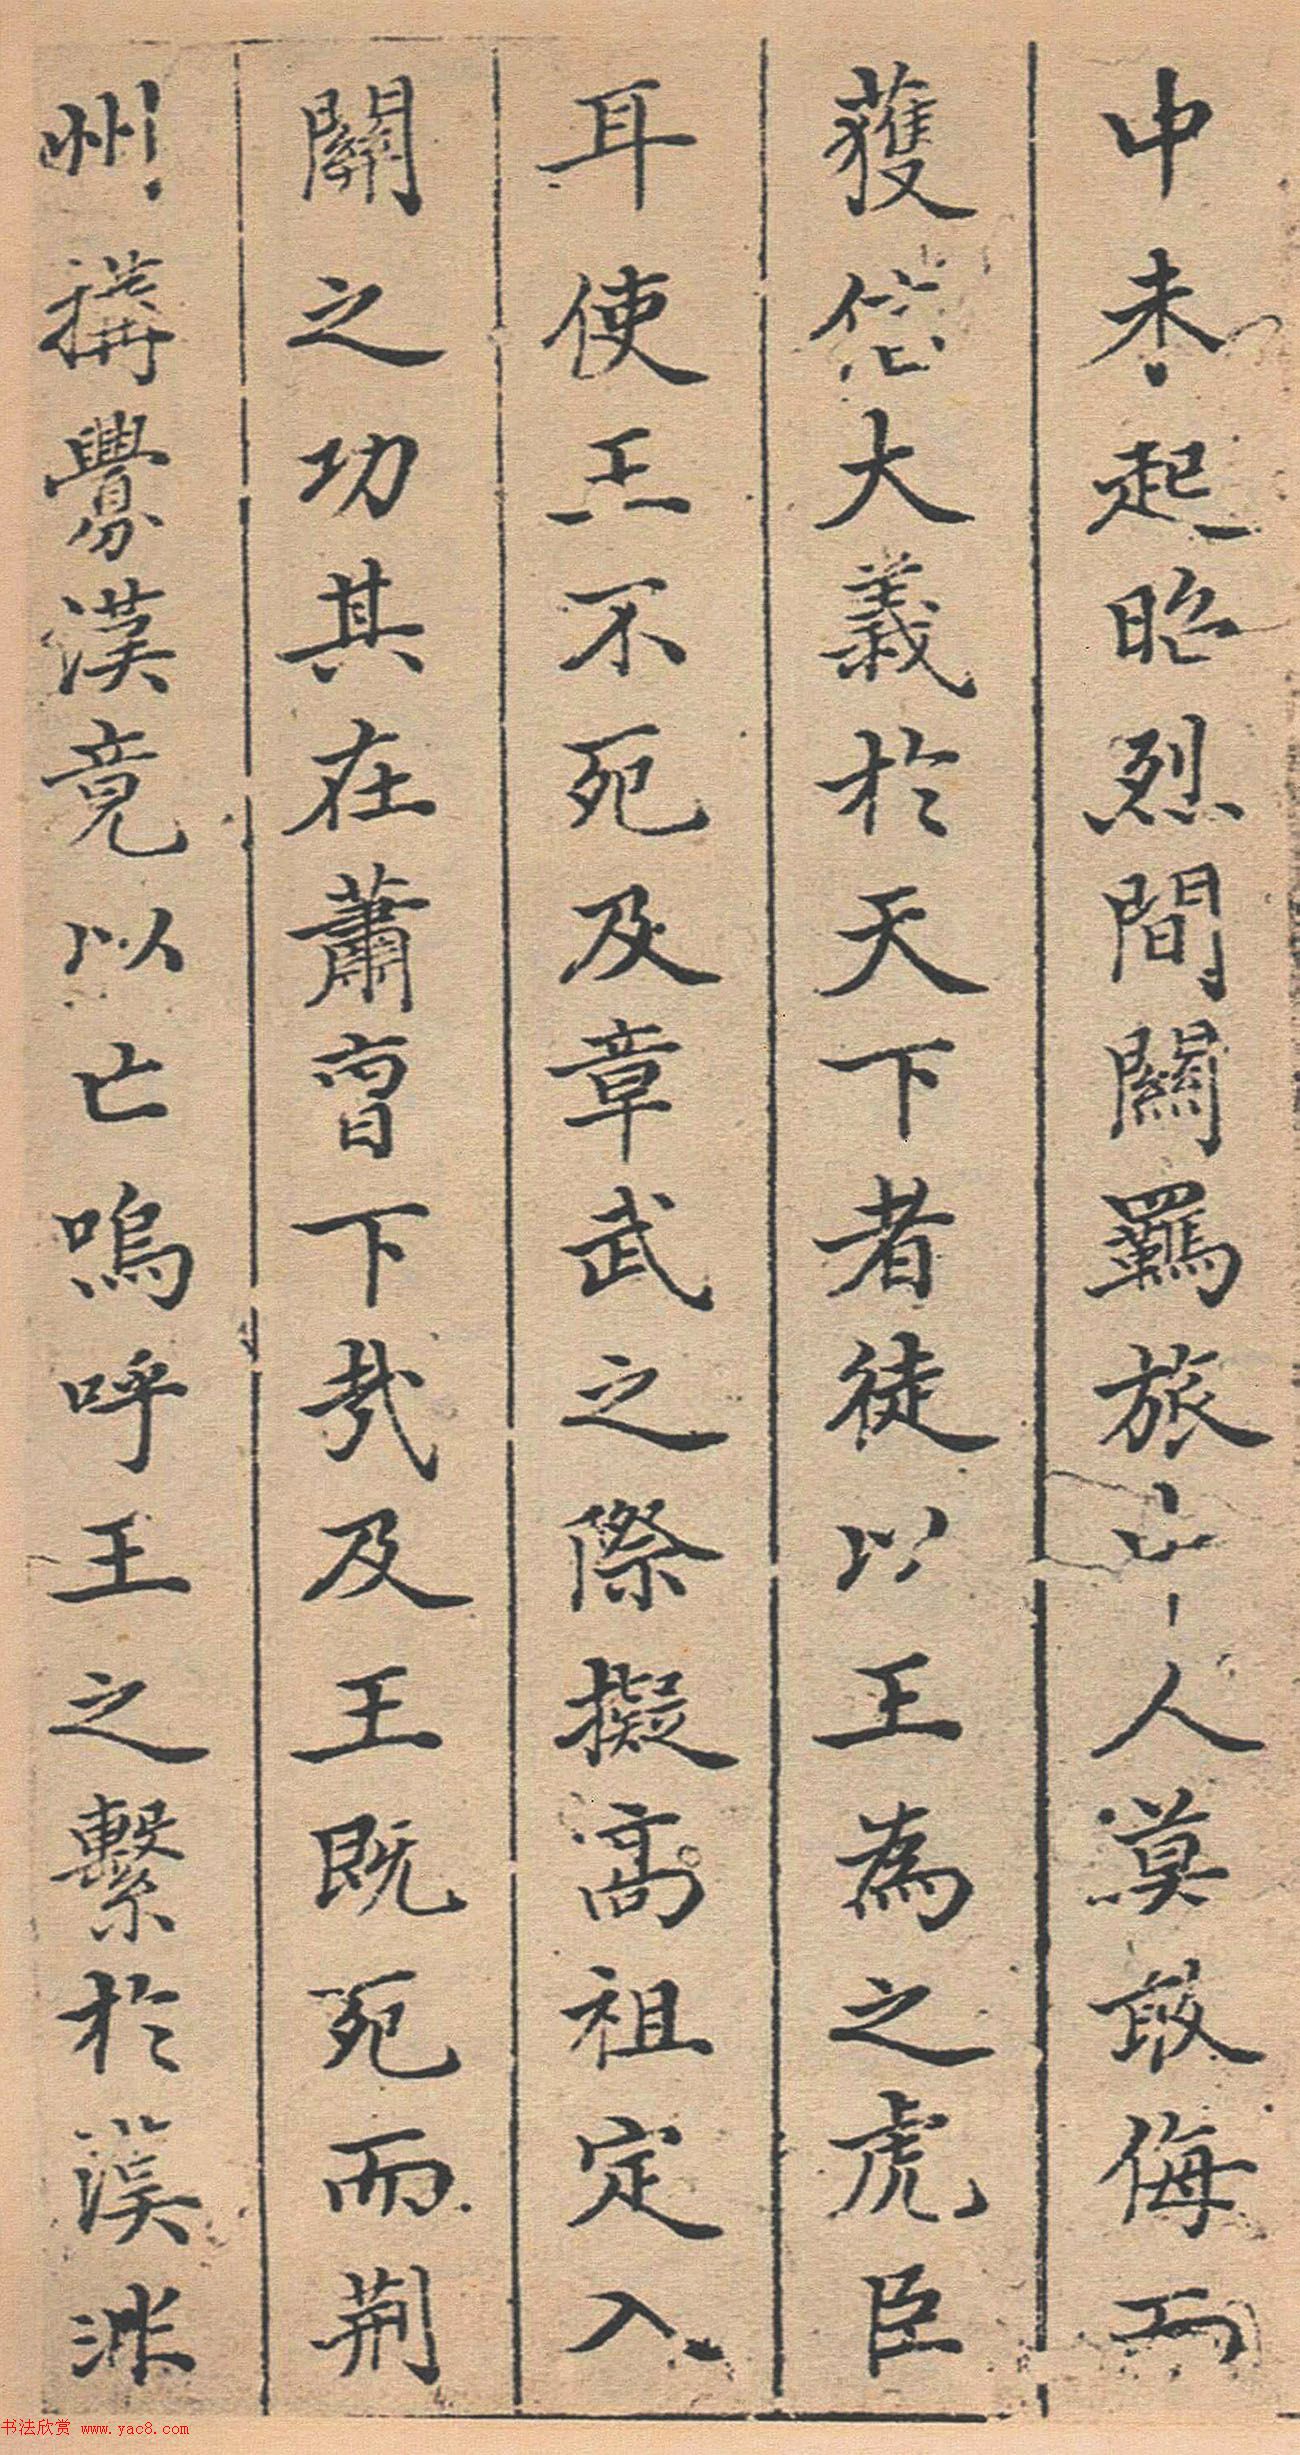 中未起昭烈間關羈旅之中人莫敢侮而
獲信大義於天下者徒以王為之虎臣
耳使王不死及章武之際擬高祖定入
關之功其在蕭曹下哉及王既死而荊
州搆釁漢竟以亡嗚呼王之繫於漢漨
书法欣赏 www.yac8.com